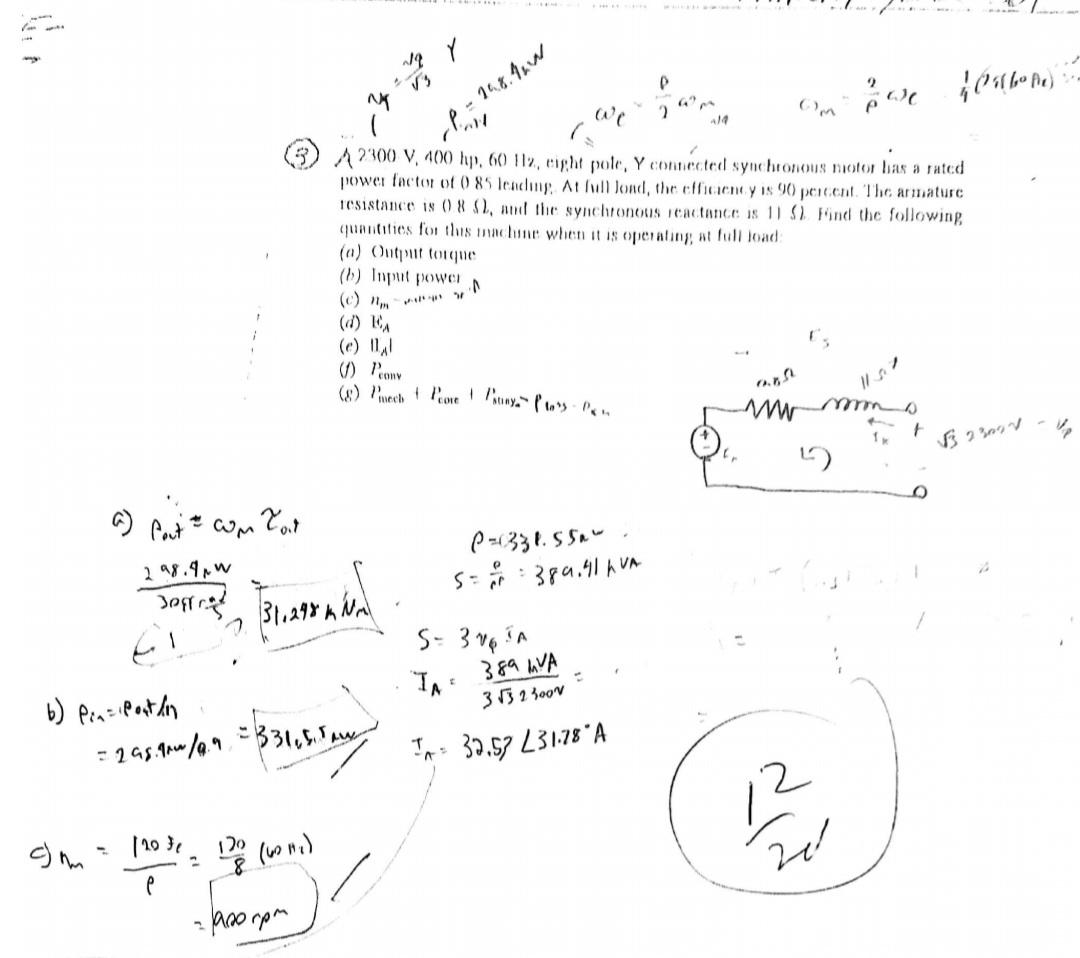 Y
P = 298.4 kW
ωe = P/2 ωm
ωm = 2/P ωe
③ A 2300 V, 400 hp, 60 Hz, eight pole, Y connected synchronous motor has a rated
power factor of 0 85 leading. At full load, the efficiency is 90 percent. The armature
resistance is 0 8 Ω, and the synchronous reactance is 11 Ω. Find the following
quantities for this machine when it is operating at full load:
(a) Output torque
(b) Input power
(c) nm
(d) EA
(e) |IA|
(f) Pconv
(g) Pmech + Pcore + Pstray = Ploss
Es
0.8Ω
11Ω
+
√3 2300V = Vφ
a) Pout = ωm τout
298.4kW
30π rad/s
= 31.298 kNm
P = 331.55kW
S = P/PF = 389.41 kVA
S = 3 Vφ IA
IA = 389 kVA / 3√3 2300V =
IA = 32.57 ∠31.78° A
b) Pin = Pout/η
= 298.4kW/0.9 = 331.55kW
c) nm = 120 fe / P = 120/8 (60 Hz)
= 900 rpm
12/20